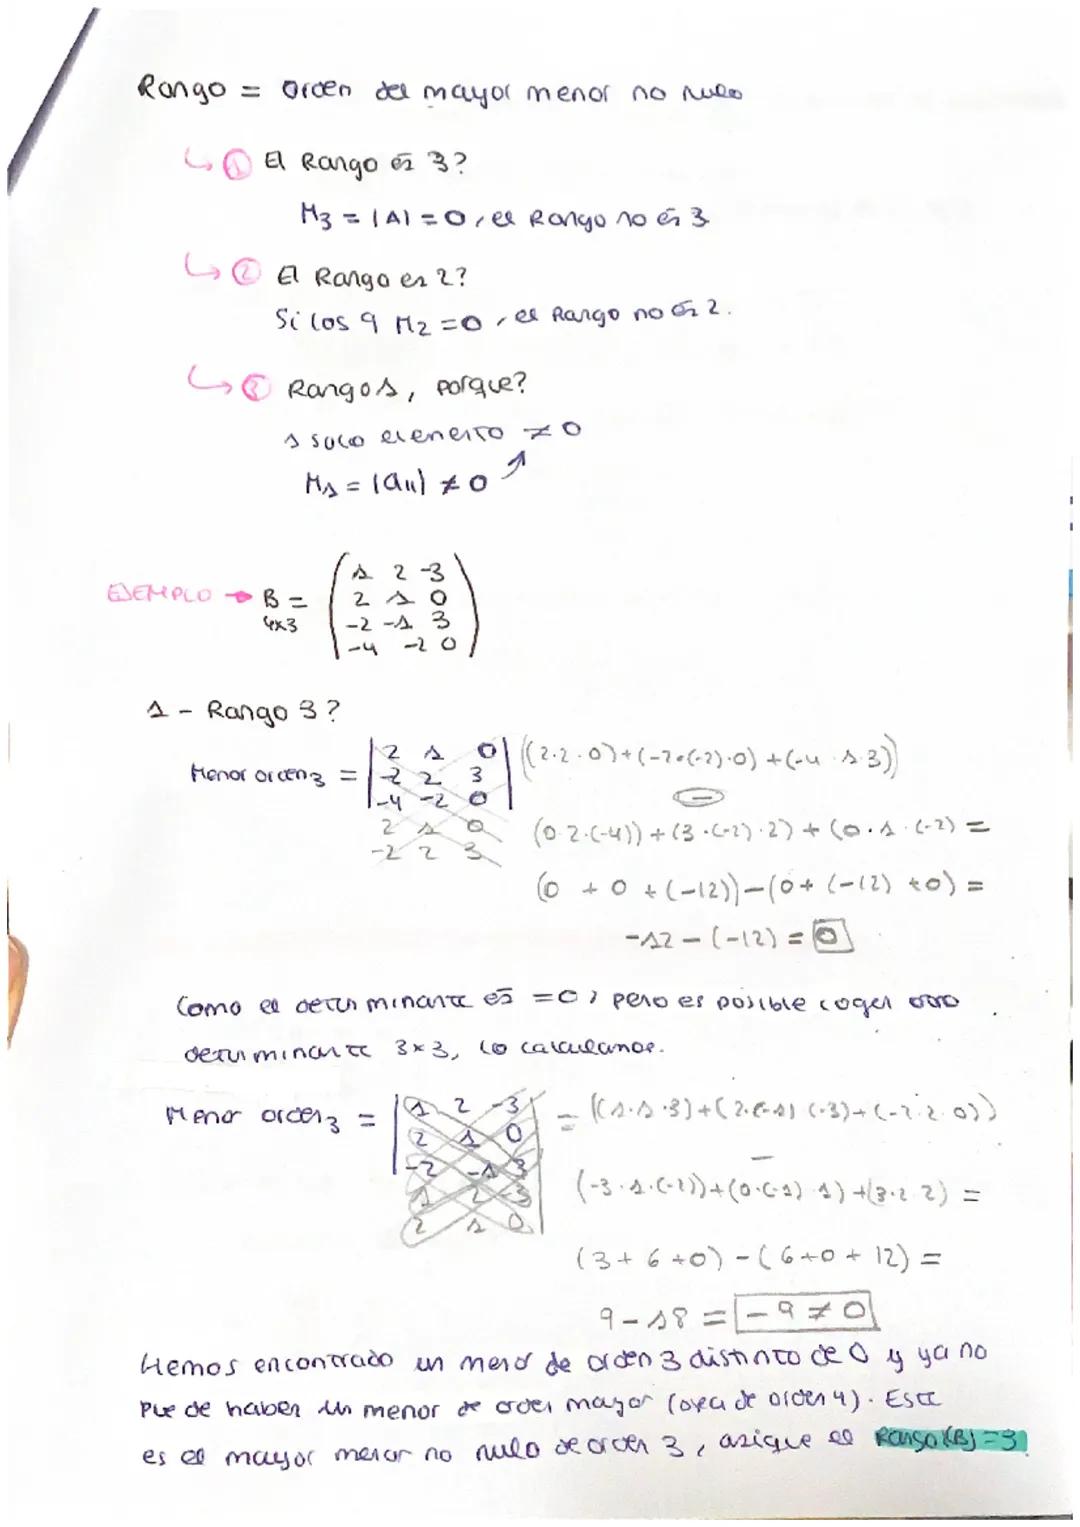 Rango = Orden del mayor menor no nulo
↳ ① El Rango es 3?
M₃ = |A| = 0, el Rango no es 3
↳ ② El Rango es 2?
Si los 9 M₂ = 0, el Rango no es 2.
↳ ③ Rango 1, porque?
1 solo elemento ≠ 0
M₁ = |a₁₁| ≠ 0
EJEMPLO → B =
4x3
1 2 -3
2 1 0
-2 -1 3
-4 -2 0
1 - Rango 3?
Menor orden 3 =
2 1 0
-2 2 3
-4 -2 0
2 1 0
-2 2 3
((2·2·0)+(-2·(-2)·0)+(-4·1·3))
-
(0·2·(-4))+(3·(-2)·2)+(0·1·(-2) =
(0 + 0 + (-12))-(0+ (-12) +0) =
-12 - (-12) = 0
Como el determinante es =0, pero es posible coger otro
determinante 3x3, lo calculamos.
Menor orden 3 =
1 2 -3
2 1 0
-2 -1 3
1 2 -3
2 1 0
= ((1·1·3)+(2·(-1)·(-3)+(-2·2·0))
-
(-3·1·(-2))+(0·(-1)·1)+(3·2·2) =
(3+ 6 +0) - (6+0+ 12) =
9 - 18 = -9 ≠ 0
Hemos encontrado un menor de orden 3 distinto de 0 y ya no
puede haber un menor de orden mayor (osea de orden 4). Este
es el mayor menor no nulo de orden 3, asique el Rango(B)=3